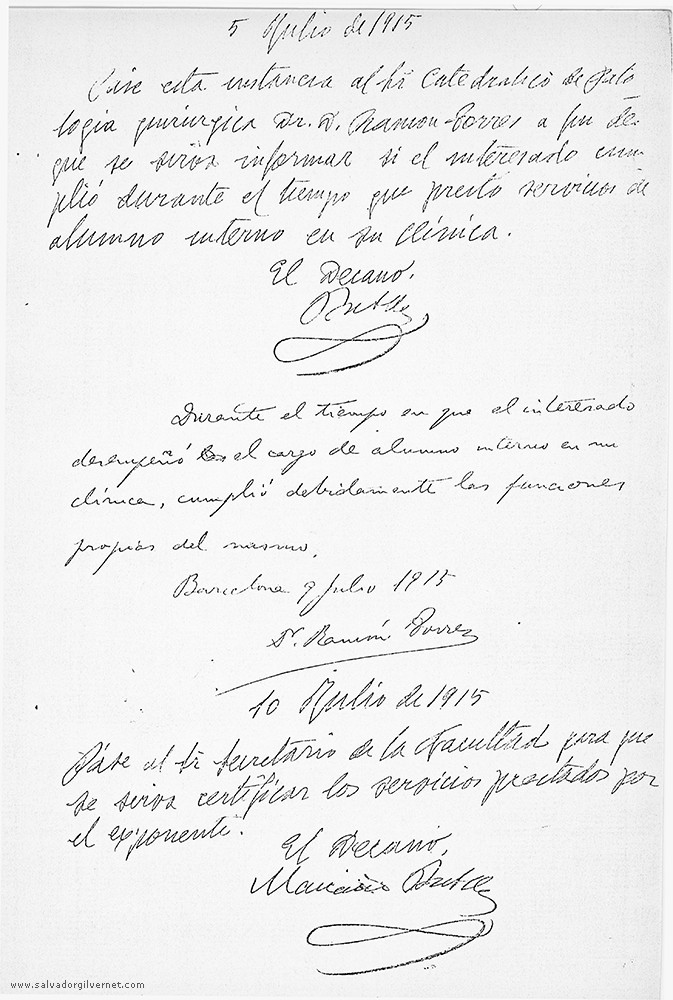 5 Julio de 1915
Pase esta instancia al Sr Catedratico de Pato
logia quirurgica Dr. D. Ramon Torres a fin de
que se sirva informar si el interesado cum
plió durante el tiempo que prestó servicios de
alumno interno en su clínica.
El Decano,
Durante el tiempo en que el interesado
desempeñó el cargo de alumno interno en mi
clínica, cumplió debidamente las funciones
propias del mismo.
Barcelona 9 Julio 1915
Dr. Ramón Torres
10 Julio de 1915
Páse al Sr Secretario de la Facultad para que
se sirva certificar los servicios prestados por
el exponente.
El Decano,
www.salvadorgilvernet.com